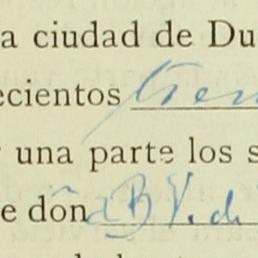 a ciudad de Du
ecientos tren
una parte los s
e don ña B V. de